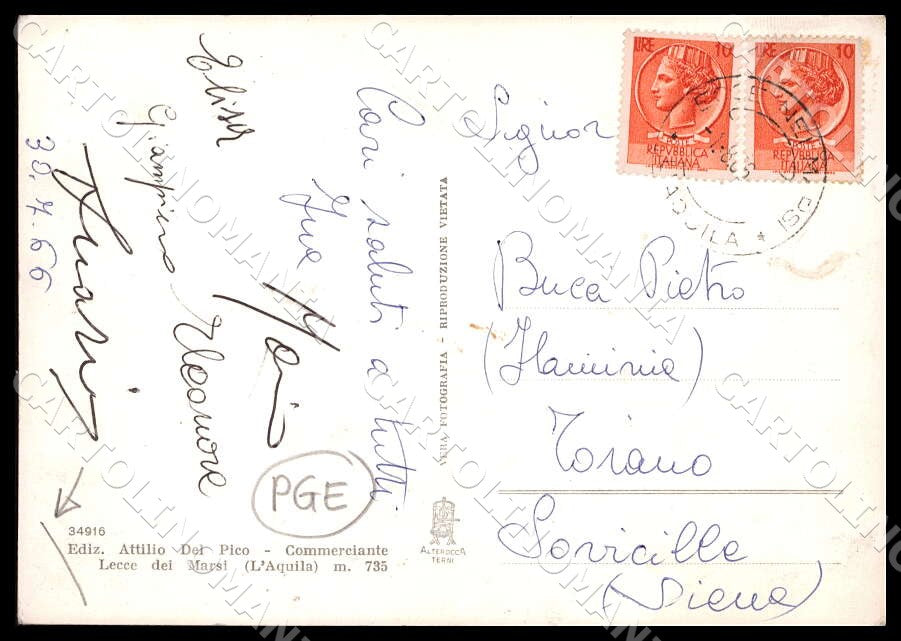 Elisa
Giampiero
Eleonora
30.7.66
Cari saluti a tutti
PGE
34916
Ediz. Attilio Del Pico - Commerciante
Lecce dei Marsi (L'Aquila) m. 735
VERA FOTOGRAFIA - RIPRODUZIONE VIETATA
ALTEROCCA
TERNI
LIRE 10
REPVBBLICA
ITALIANA
LIRE 10
REPVBBLICA
ITALIANA
Signor
Buca Pietro
(Flaminia)
Toiano
Sovicille
(Siena)
CARTOLINOMANIA